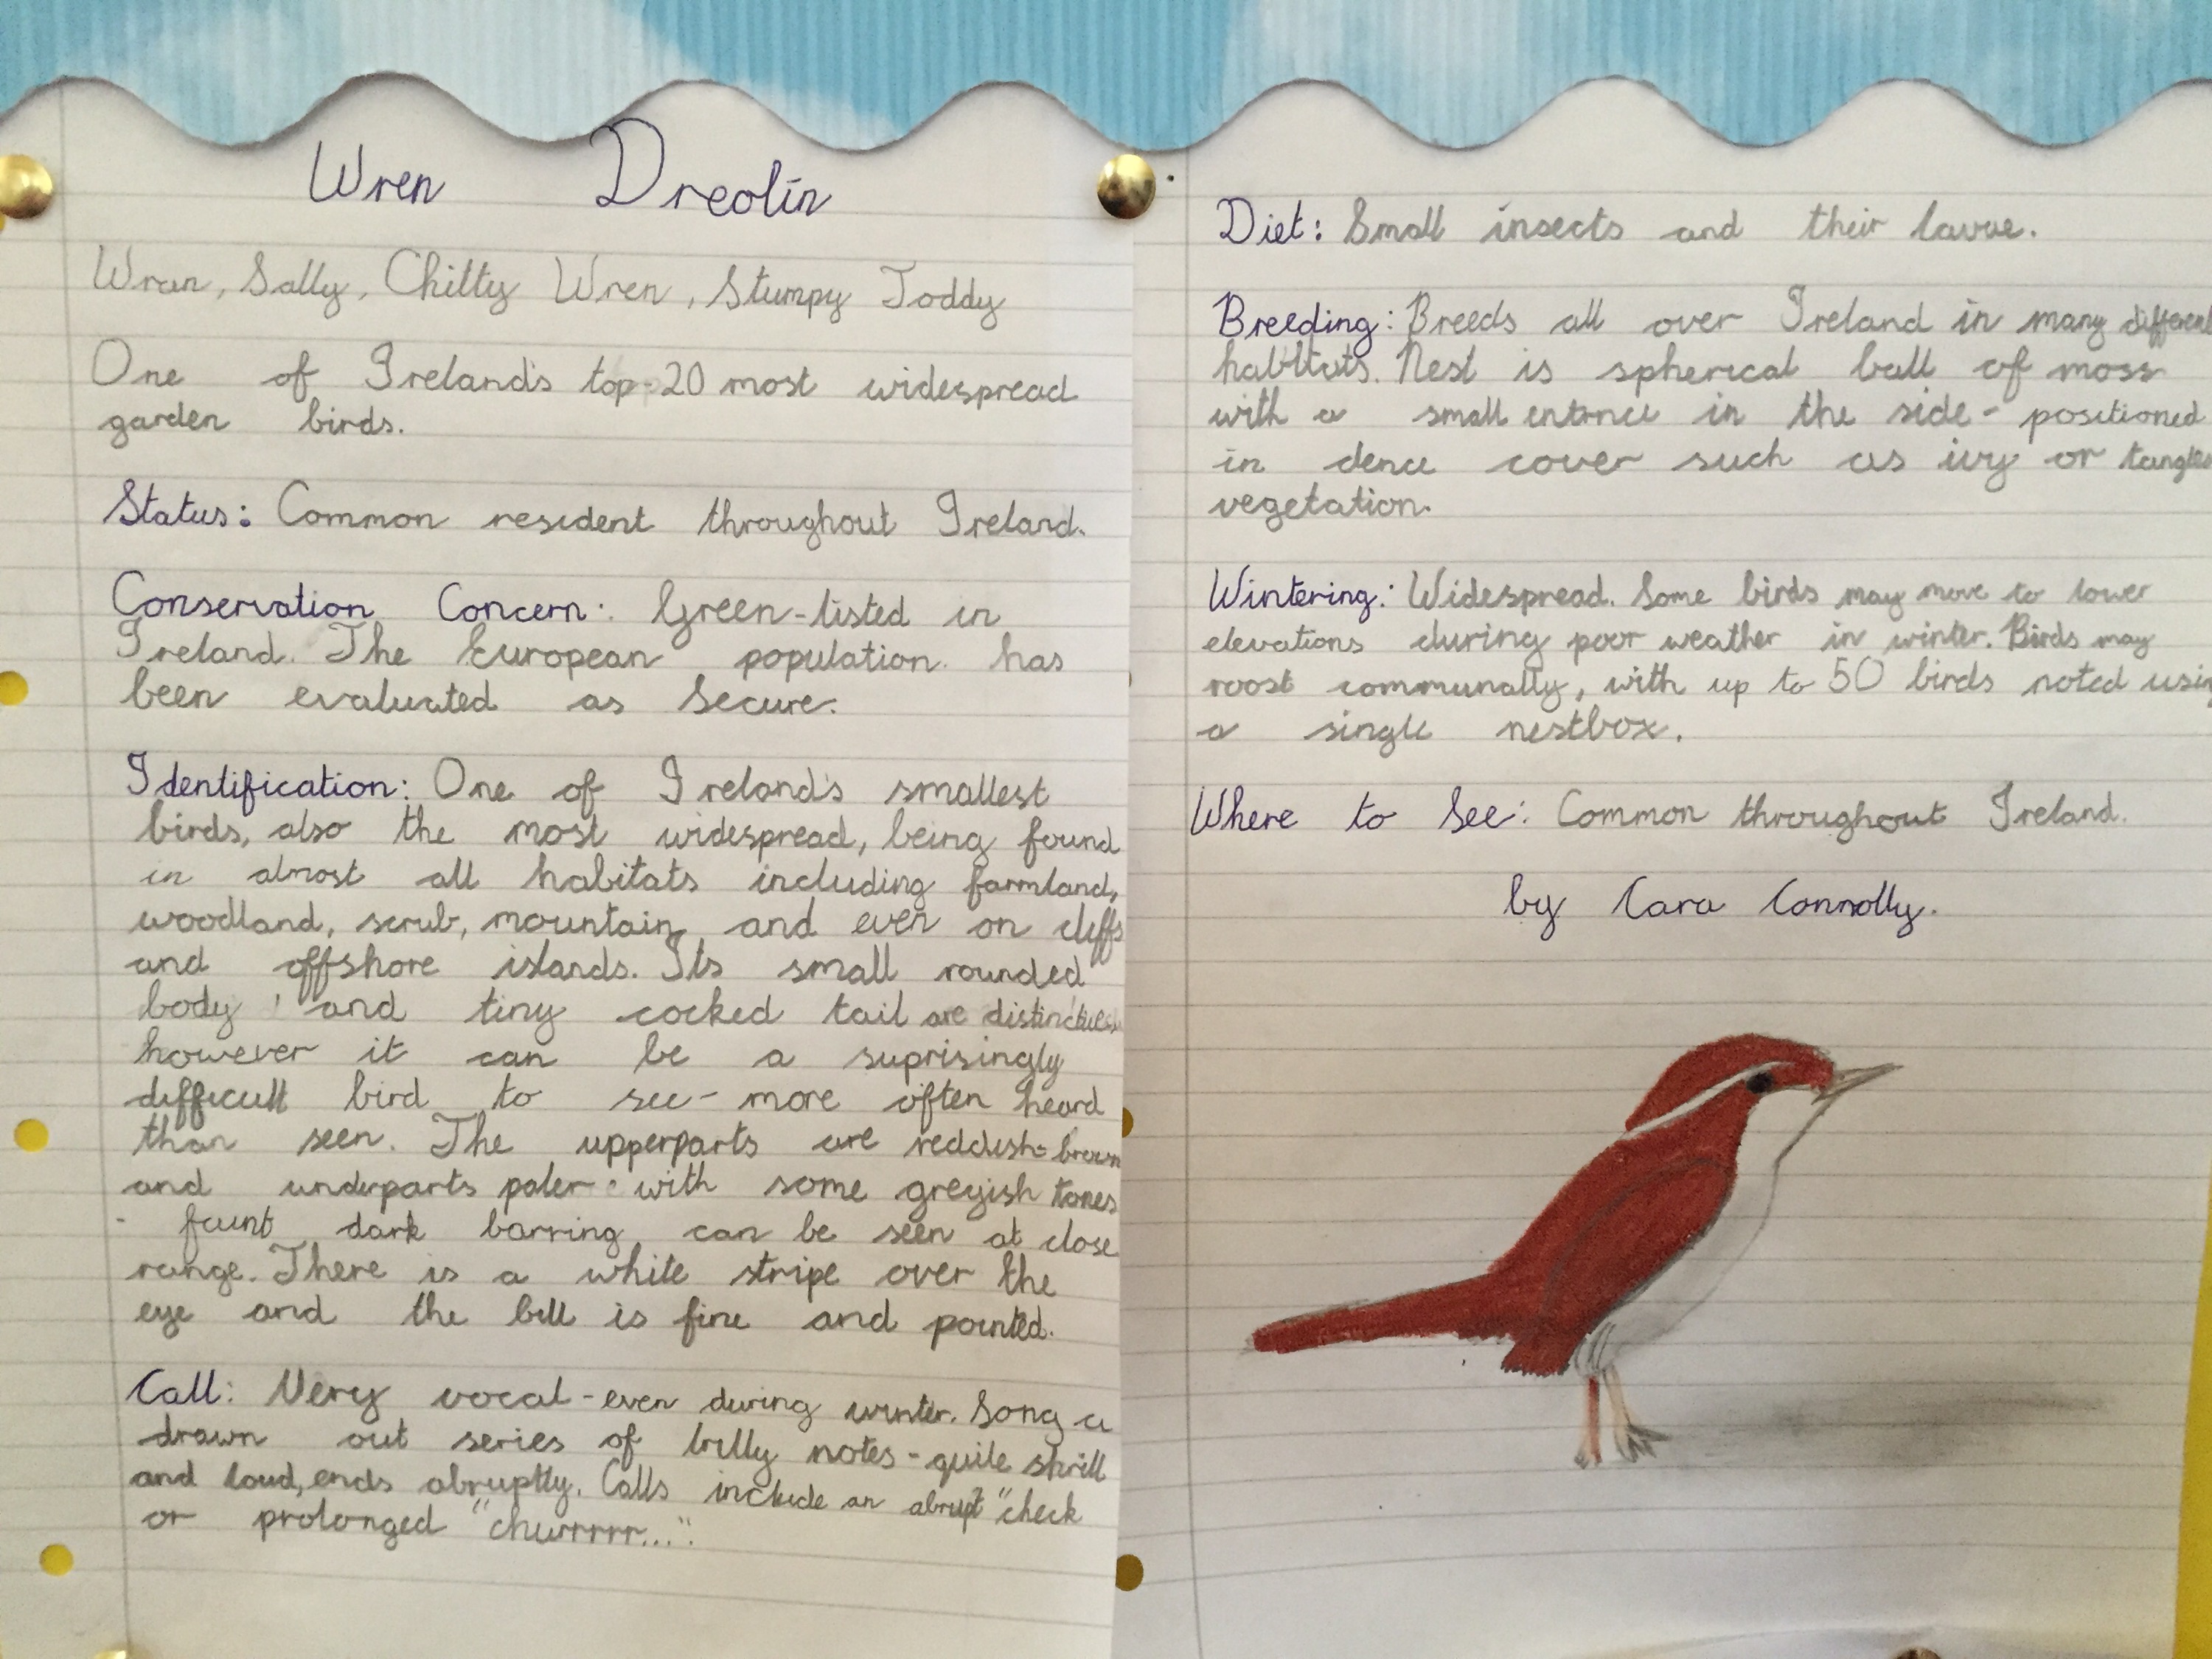 Wren Dreolín
Wran, Sally, Chitty Wren, Stumpy Toddy
One of Ireland's top-20 most widespread
garden birds.
Status: Common resident throughout Ireland.
Conservation Concern: Green-listed in
Ireland. The European population has
been evaluated as Secure.
Identification: One of Ireland's smallest
birds, also the most widespread, being found
in almost all habitats including farmland,
woodland, scrub, mountain, and even on cliffs
and offshore islands. Its small rounded
body and tiny cocked tail are
however it can be a suprisingly
difficult bird to see- more often heard
than seen. The upperparts are reddish-brown
and underparts paler with some greyish tones
- faint dark barring can be seen at close
range. There is a white stripe over the
eye and the bill is fine and pointed.
Call: Very vocal-even during winter. Song a
drawn out series of notes-quite shrill
and loud, ends abruptly. Calls include an abrupt "check
or prolonged "churrrrr...".
Diet: Small insects and their lavae.
Breeding: Breeds all over Ireland in many different
habitats. Nest is spherical ball of moss
with a small entrnce in the side- positioned
in dence cover such as ivy or
vegetation.
Wintering: Widespread. Some birds may move to lower
elevations during poor weather in winter. Birds may
roost communally, with up to 50 birds noted using
a single nestbox.
Where to See: Common throughout Ireland.
by Cara Connolly.